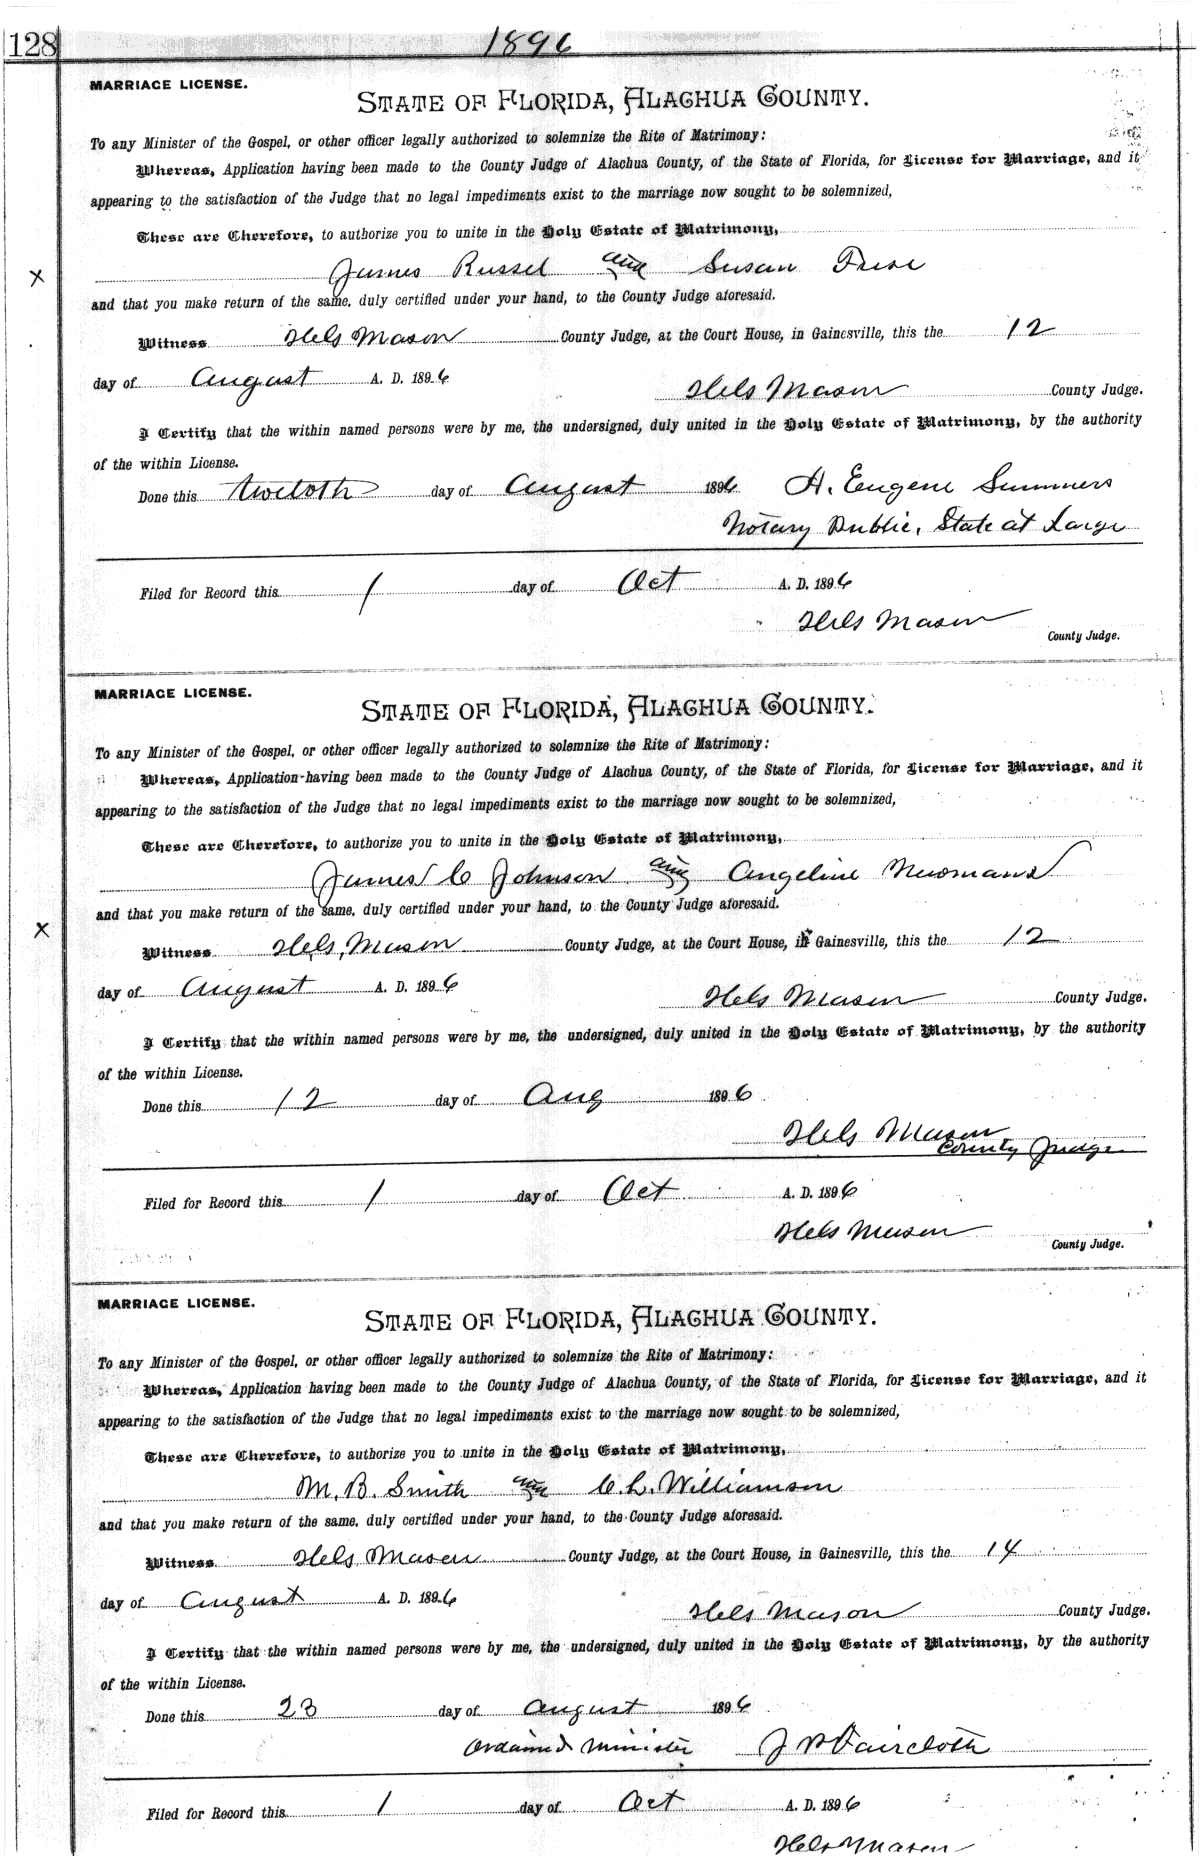 128
1896
MARRIAGE LICENSE.
STATE OF FLORIDA, ALACHUA COUNTY.
To any Minister of the Gospel, or other officer legally authorized to solemnize the Rite of Matrimony:
Whereas, Application having been made to the County Judge of Alachua County, of the State of Florida, for License for Marriage, and it
appearing to the satisfaction of the Judge that no legal impediments exist to the marriage now sought to be solemnized,
These are Therefore, to authorize you to unite in the Holy Estate of Matrimony,
James Russel and Susan
x
and that you make return of the same, duly certified under your hand, to the County Judge aforesaid.
Witness Mason County Judge, at the Court House, in Gainesville, this the 12
day of August A. D. 1896
Mason County Judge.
I Certify that the within named persons were by me, the undersigned, duly united in the Holy Estate of Matrimony, by the authority
of the within License.
Done this day of August 1896 H. Eugene Summers
Notary Public, State at Large
Filed for Record this 1 day of Oct A. D. 1896
Mason
County Judge.
MARRIAGE LICENSE.
STATE OF FLORIDA, ALACHUA COUNTY.
To any Minister of the Gospel, or other officer legally authorized to solemnize the Rite of Matrimony:
Whereas, Application having been made to the County Judge of Alachua County, of the State of Florida, for License for Marriage, and it
appearing to the satisfaction of the Judge that no legal impediments exist to the marriage now sought to be solemnized,
These are Therefore, to authorize you to unite in the Holy Estate of Matrimony,
James C Johnson and Angeline
and that you make return of the same, duly certified under your hand, to the County Judge aforesaid.
x
Witness Mason County Judge, at the Court House, in Gainesville, this the 12
day of August A. D. 1896
Mason County Judge.
I Certify that the within named persons were by me, the undersigned, duly united in the Holy Estate of Matrimony, by the authority
of the within License.
Done this 12 day of Aug 1896
Mason
County Judge
Filed for Record this 1 day of Oct A. D. 1896
Mason
County Judge.
MARRIAGE LICENSE.
STATE OF FLORIDA, ALACHUA COUNTY.
To any Minister of the Gospel, or other officer legally authorized to solemnize the Rite of Matrimony:
Whereas, Application having been made to the County Judge of Alachua County, of the State of Florida, for License for Marriage, and it
appearing to the satisfaction of the Judge that no legal impediments exist to the marriage now sought to be solemnized,
These are Therefore, to authorize you to unite in the Holy Estate of Matrimony,
M. B. Smith and C. L. Williamson
and that you make return of the same, duly certified under your hand, to the County Judge aforesaid.
Witness Mason County Judge, at the Court House, in Gainesville, this the 14
day of August A. D. 1896
Mason County Judge.
I Certify that the within named persons were by me, the undersigned, duly united in the Holy Estate of Matrimony, by the authority
of the within License.
Done this 23 day of August 1896
Ordained Minister Faircloth
Filed for Record this 1 day of Oct A. D. 1896
Mason